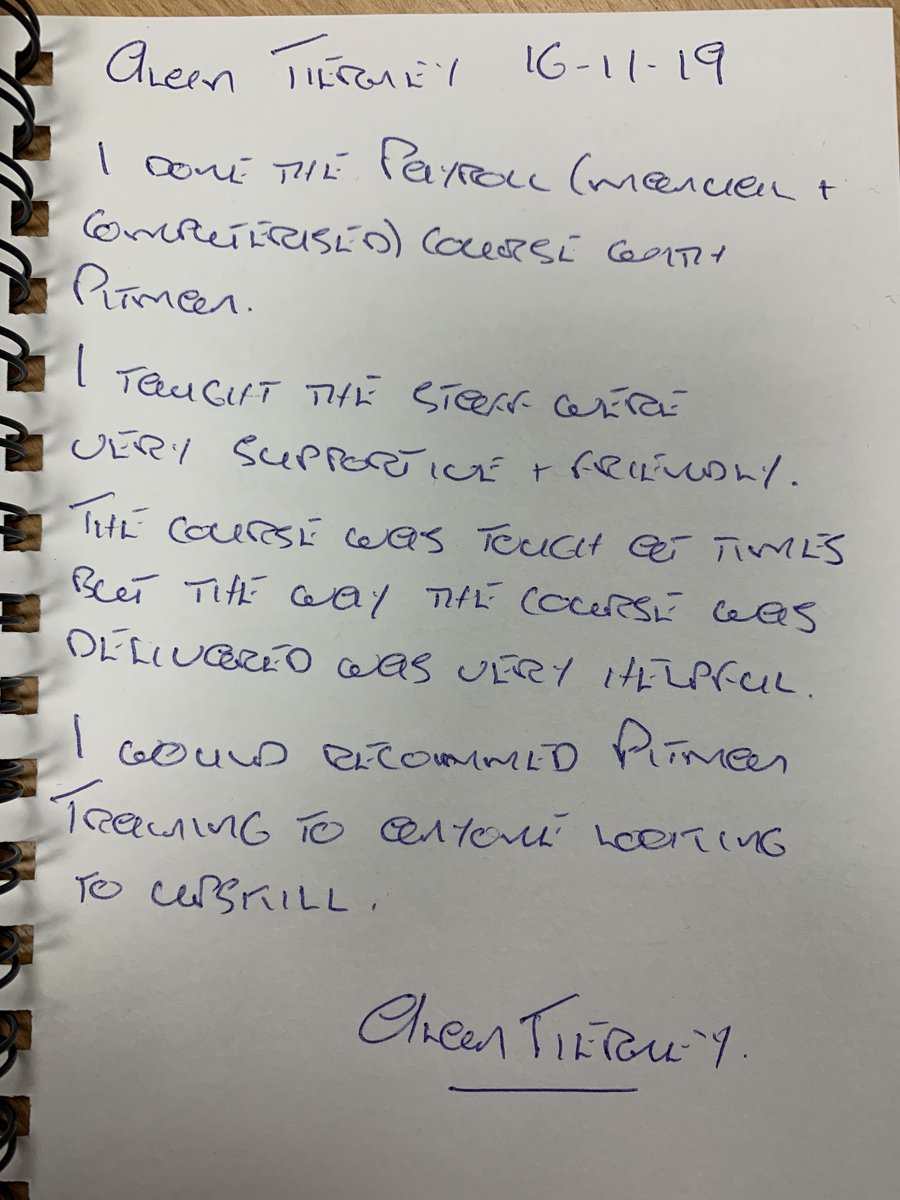 Alan TIERNEY 16-11-19
I DONE THE PAYROLL (MANUAL +
COMPUTERISED) COURSE WITH
PITMAN.
I TAUGHT THE STAFF WERE
VERY SUPPORTIVE + FRIENDLY.
THE COURSE WAS TOUGH AT TIMES
BUT THE WAY THE COURSE WAS
DELIVERED WAS VERY HELPFUL.
I WOULD RECOMMED PITMAN
TRAINING TO ANYONE LOOKING
TO UPSKILL.
Alan TIERNEY.